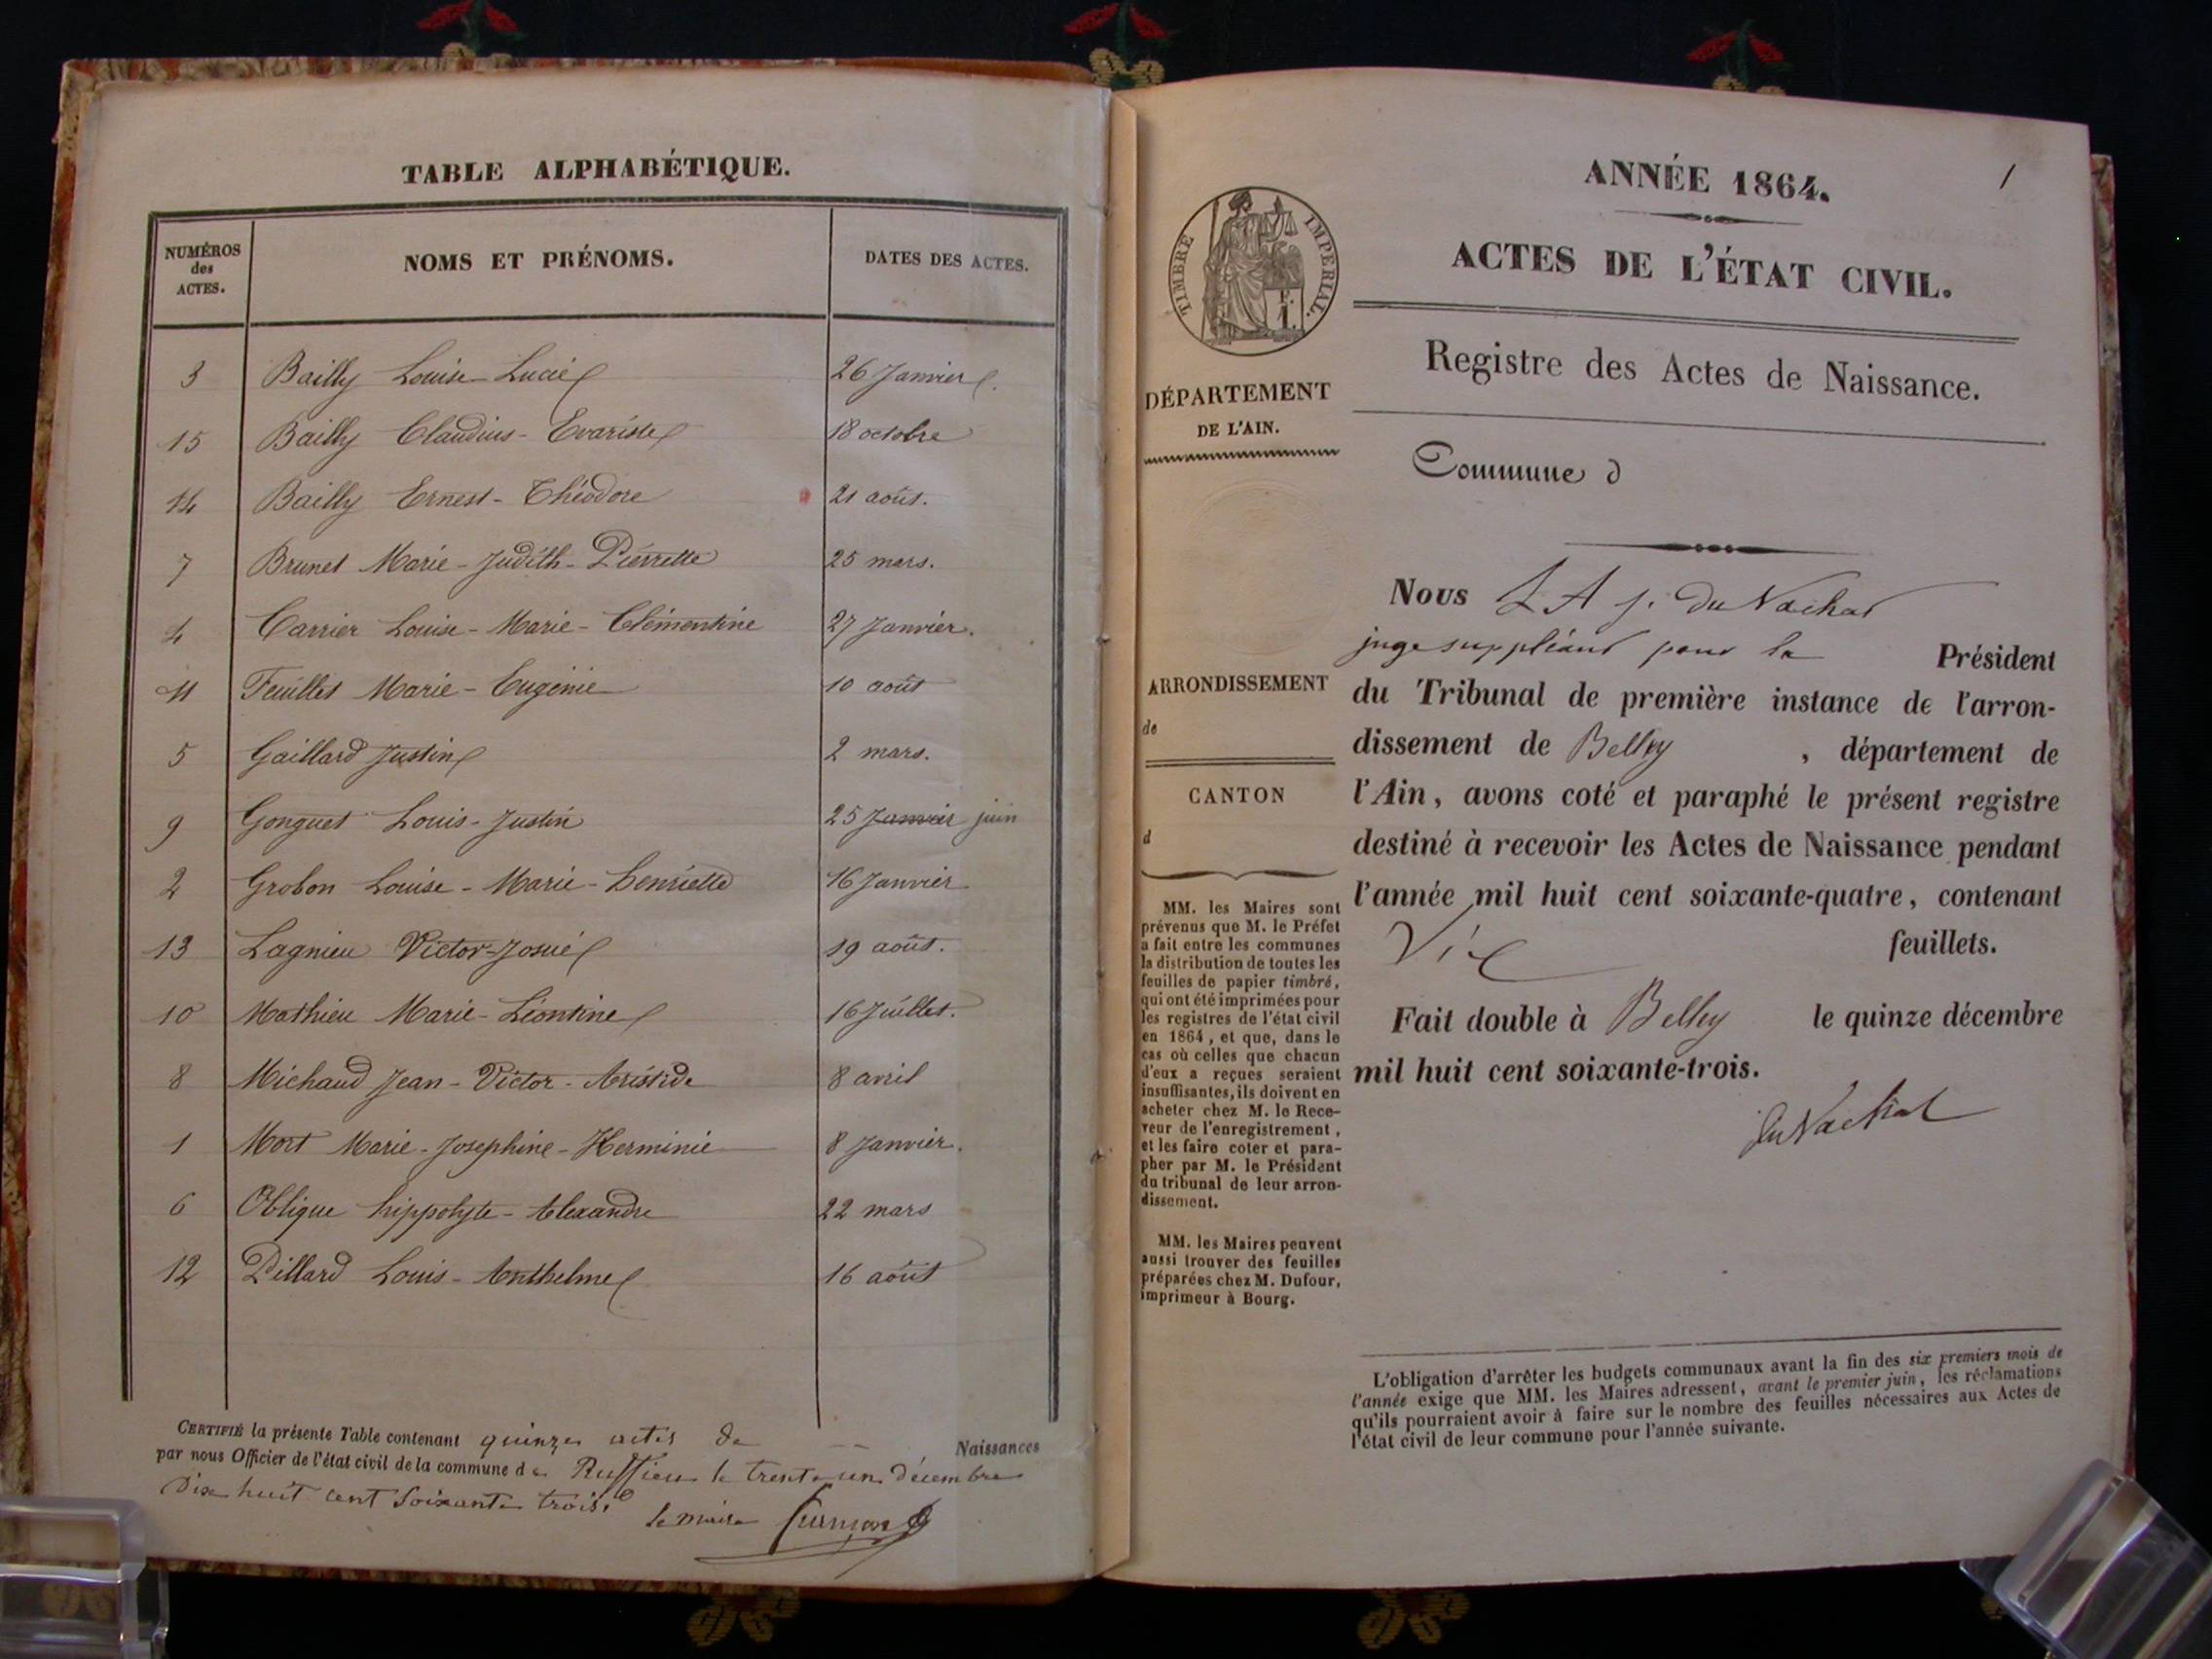 TABLE ALPHABÉTIQUE.
NUMÉROS des ACTES. NOMS ET PRÉNOMS. DATES DES ACTES.
3 Bailly Louise-Lucie 26 Janvier.
15 Bailly Claudius-Evariste 18 octobre
14 Bailly Ernest-Théodore 21 août.
7 Brunet Marie-Judith-Pierrette 25 mars.
4 Carrier Louise-Marie-Clémentine 27 Janvier.
11 Feuillet Marie-Eugénie 10 août
5 Gaillard Justin 2 mars.
9 Gonguet Louis-Justin 25 Janvier juin
2 Grobon Louise-Marie-henriette 16 Janvier
13 Lagnieu Victor-Josué 19 août.
10 Mathieu Marie-Léontine 16 Juillet.
8 Michaud Jean-Victor-Aristide 8 avril
1 Mort Marie-Josephine-Herminie 8 Janvier.
6 Oblique hippolyte-Alexandre 22 mars
12 Pillard Louis-Anthelme 16 août
CERTIFIÉ la présente Table contenant quinze actes de Naissances
par nous Officier de l'état civil de la commune de Ruffieu le trente un décembre
Dix huit cent soixante trois.
le maire
1
ANNÉE 1864.
ACTES DE L'ÉTAT CIVIL.
Registre des Actes de Naissance.
Commune d
TIMBRE IMPÉRIAL.
DÉPARTEMENT
DE L'AIN.
ARRONDISSEMENT
de
CANTON
d
MM. les Maires sont
prévenus que M. le Préfet
a fait entre les communes
la distribution de toutes les
feuilles de papier timbré,
qui ont été imprimées pour
les registres de l'état civil
en 1864, et que, dans le
cas où celles que chacun
d'eux a reçues seraient
insuffisantes, ils doivent en
acheter chez M. le Rece-
veur de l'enregistrement,
et les faire coter et para-
pher par M. le Président
du tribunal de leur arron-
dissement.
MM. les Maires peuvent
aussi trouver des feuilles
préparées chez M. Dufour,
imprimeur à Bourg.
Nous du Nachat
juge suppléant pour le Président
du Tribunal de première instance de l'arron-
dissement de Belley, département de
l'Ain, avons coté et paraphé le présent registre
destiné à recevoir les Actes de Naissance pendant
l'année mil huit cent soixante-quatre, contenant
feuillets.
Fait double à Belley le quinze décembre
mil huit cent soixante-trois.
du Nachat
L'obligation d'arrêter les budgets communaux avant la fin des six premiers mois de
l'année exige que MM. les Maires adressent, avant le premier juin, les réclamations
qu'ils pourraient avoir à faire sur le nombre des feuilles nécessaires aux Actes de
l'état civil de leur commune pour l'année suivante.